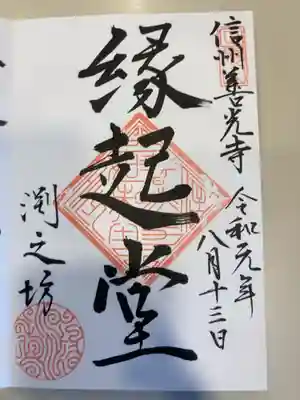 信州善光寺
令和元年
八月十三日
縁起堂
渕之坊